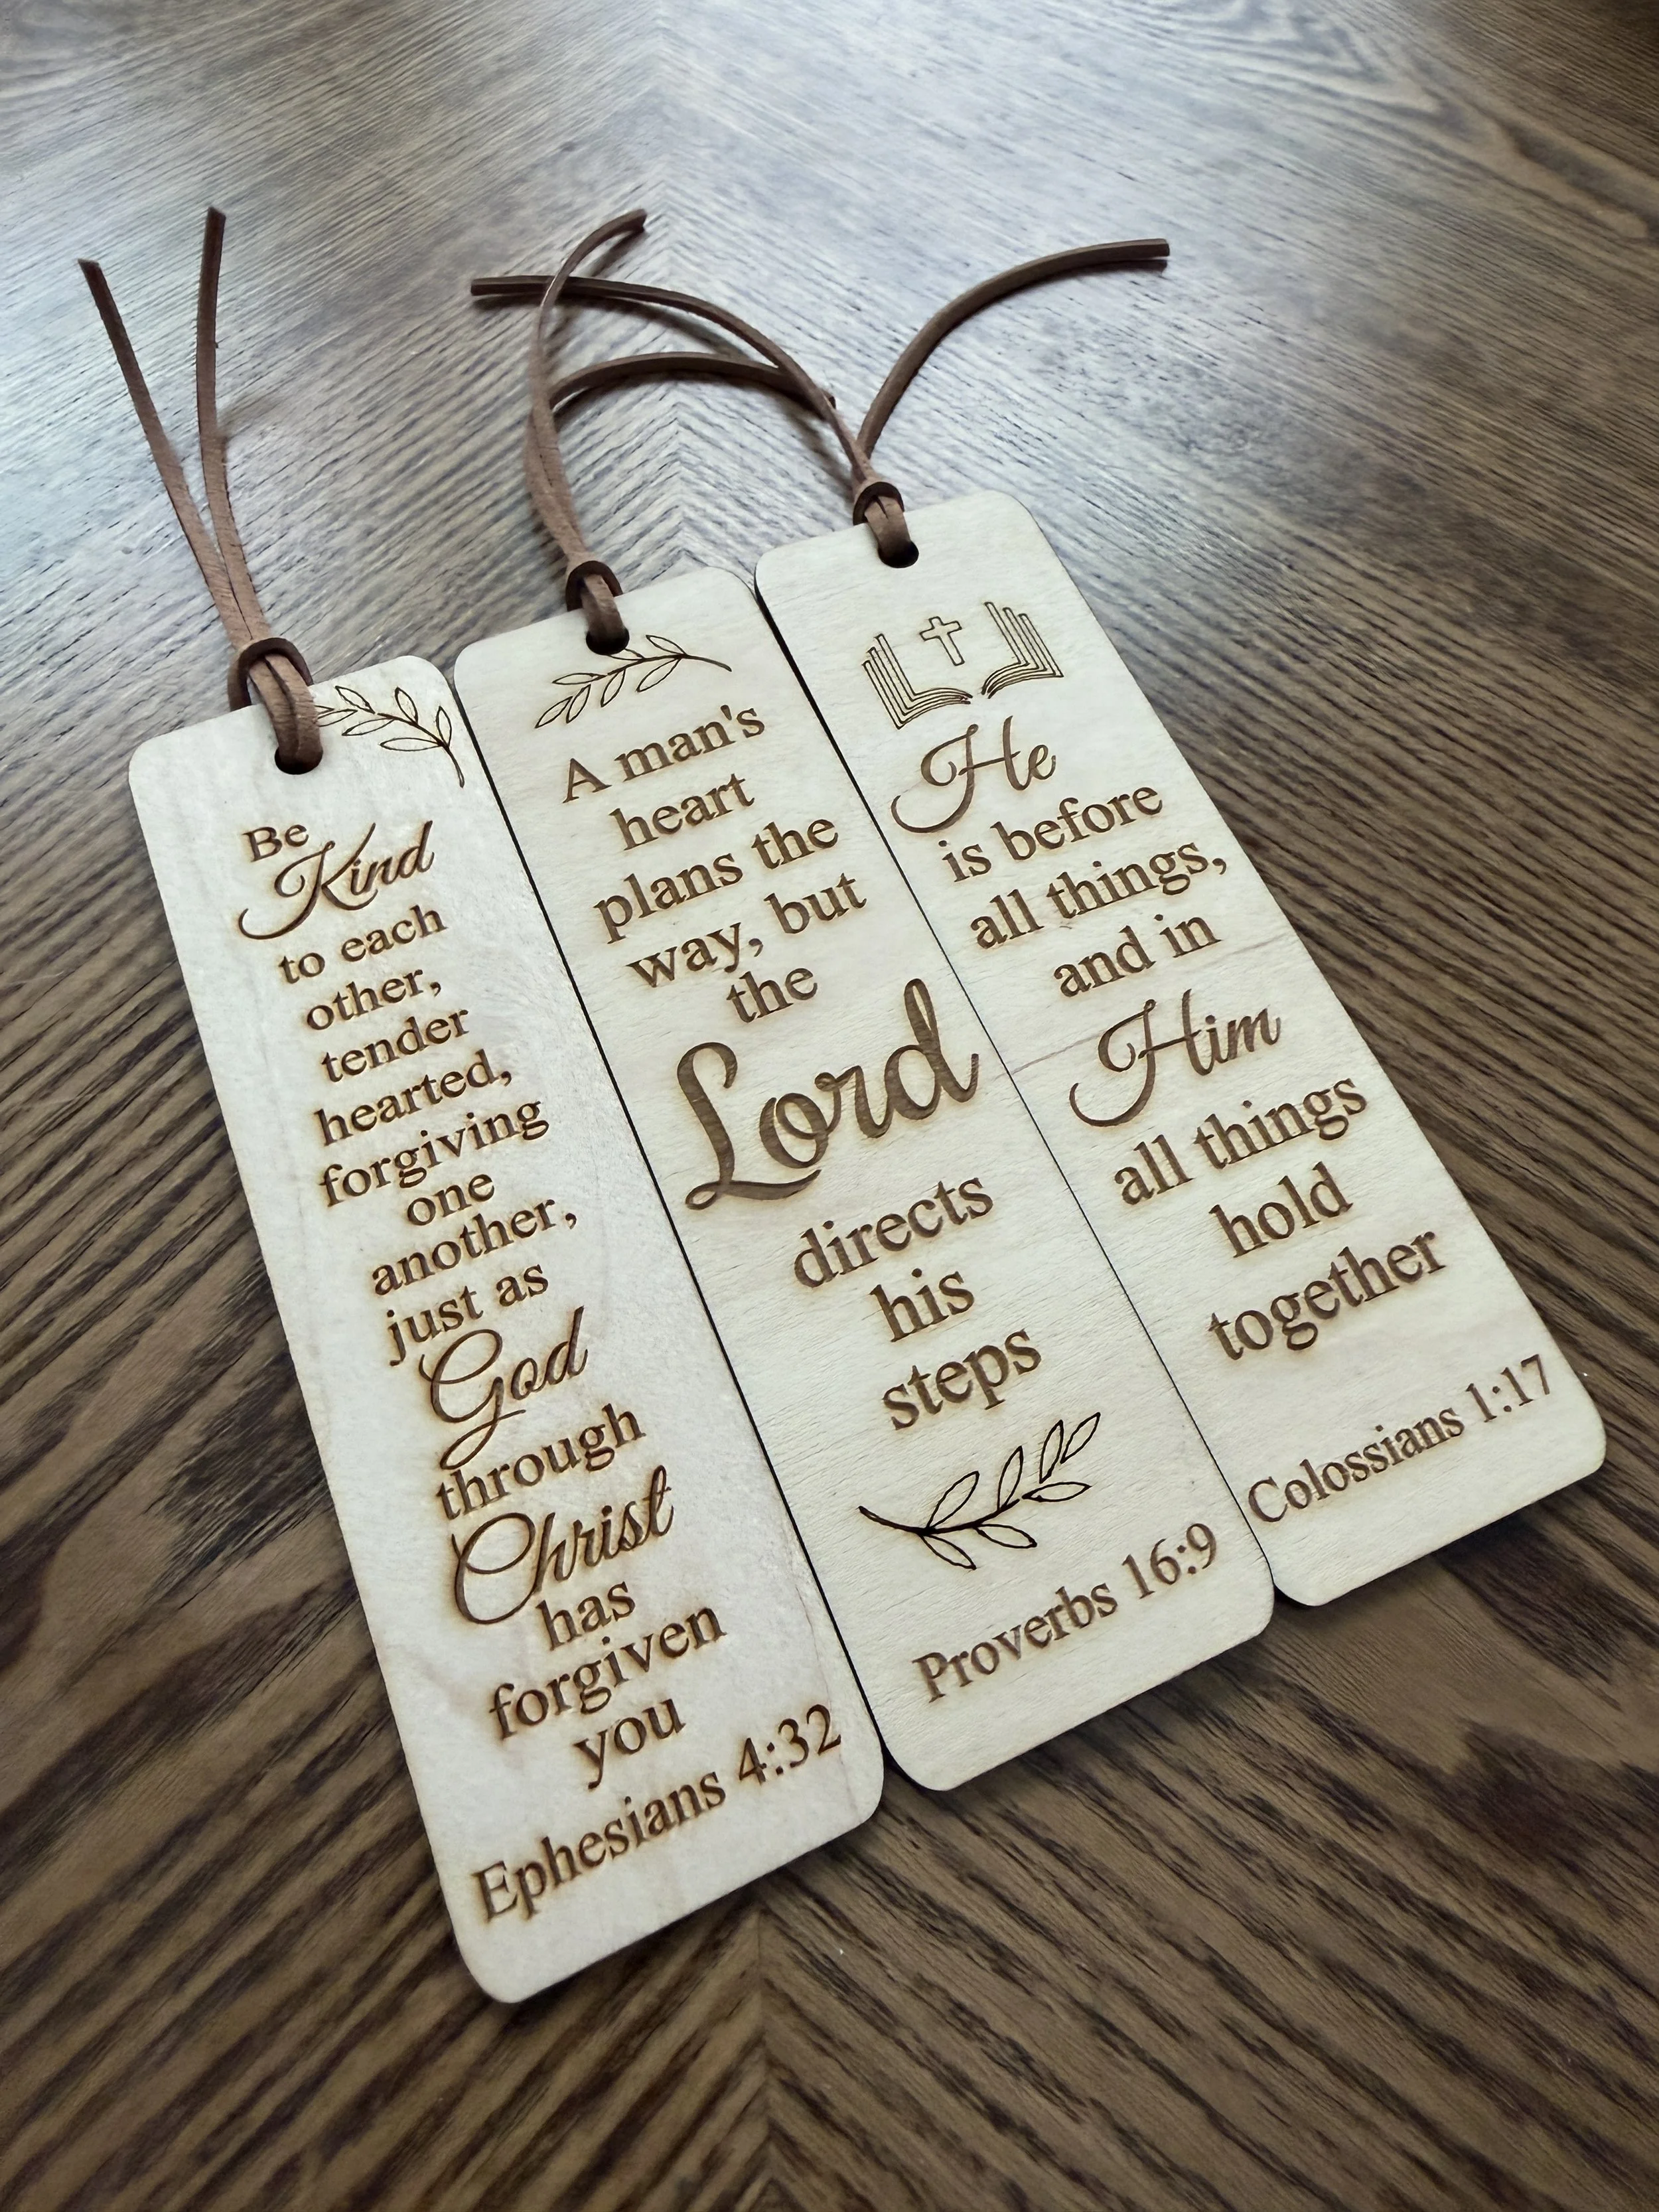 Be
Kind
to each
other,
tender
hearted,
forgiving
one
another,
just as
God
through
Christ
has
forgiven
you
Ephesians 4:32
A man's
heart
plans the
way, but
the
Lord
directs
his
steps
Proverbs 16:9
He
is before
all things,
and in
Him
all things
hold
together
Colossians 1:17